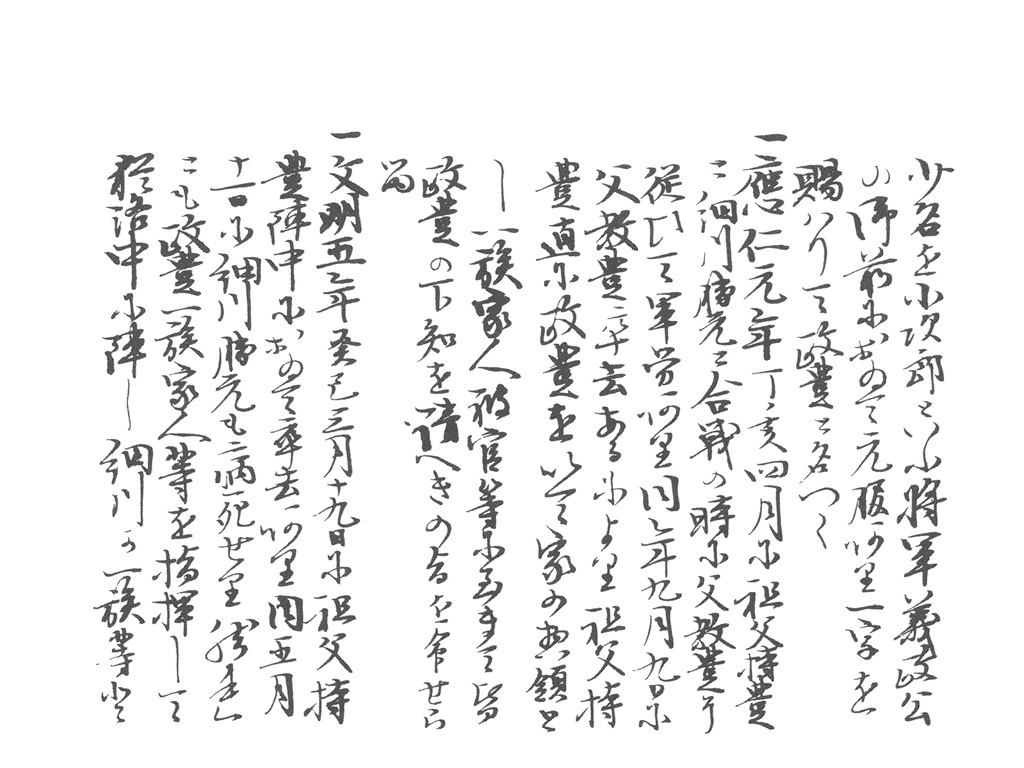 少名を小次郎といふ将軍義政公
の御前においゐて元服あり一字を
賜ハりて政豊と名つく
一應仁元年丁亥四月に祖父持豊
と細川勝元と合戦の時に父教豊に
従ひて軍労あり同年九月九日に
父教豊卒去あるにより祖父持
豊直に政豊を以て家の惣領と
し一族家人被官等に至まて皆
政豊の下知を請へきの旨を命せら
る
一文明五年癸巳三月十九日に祖父持
豊陣中においゐて卒去あり同五月
十一日に細川勝元も亦病死せり然れ
とも政豊一族家人等を指揮して
於洛中に陣し細川の一族等と